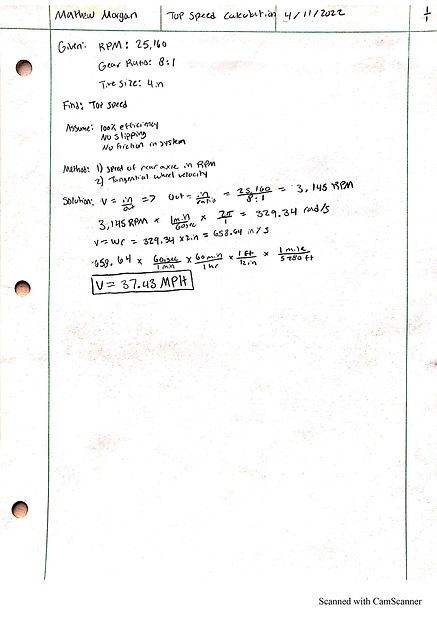 Mathew Morgan Top Speed Calculation 4/11/2022 1/1
Given: RPM: 25,160
Gear Ratio: 8:1
Tire Size: 4in
Find: Top speed
Assume: 100% efficiency
No slipping
No friction in system
Method: 1) speed of rear axle in RPM
2) Tangential wheel velocity
Solution: V = in/out => out = in/ratio = 25,160/8:1 = 3,145 RPM
3,145 RPM × 1min/60sec × 2π/1 = 329.34 rad/s
V = wr = 329.34 × 2in = 658.64 in/s
658.64 × 60sec/1min × 60min/1hr × 1ft/12in × 1mile/5280ft
V = 37.43 MPH
Scanned with CamScanner